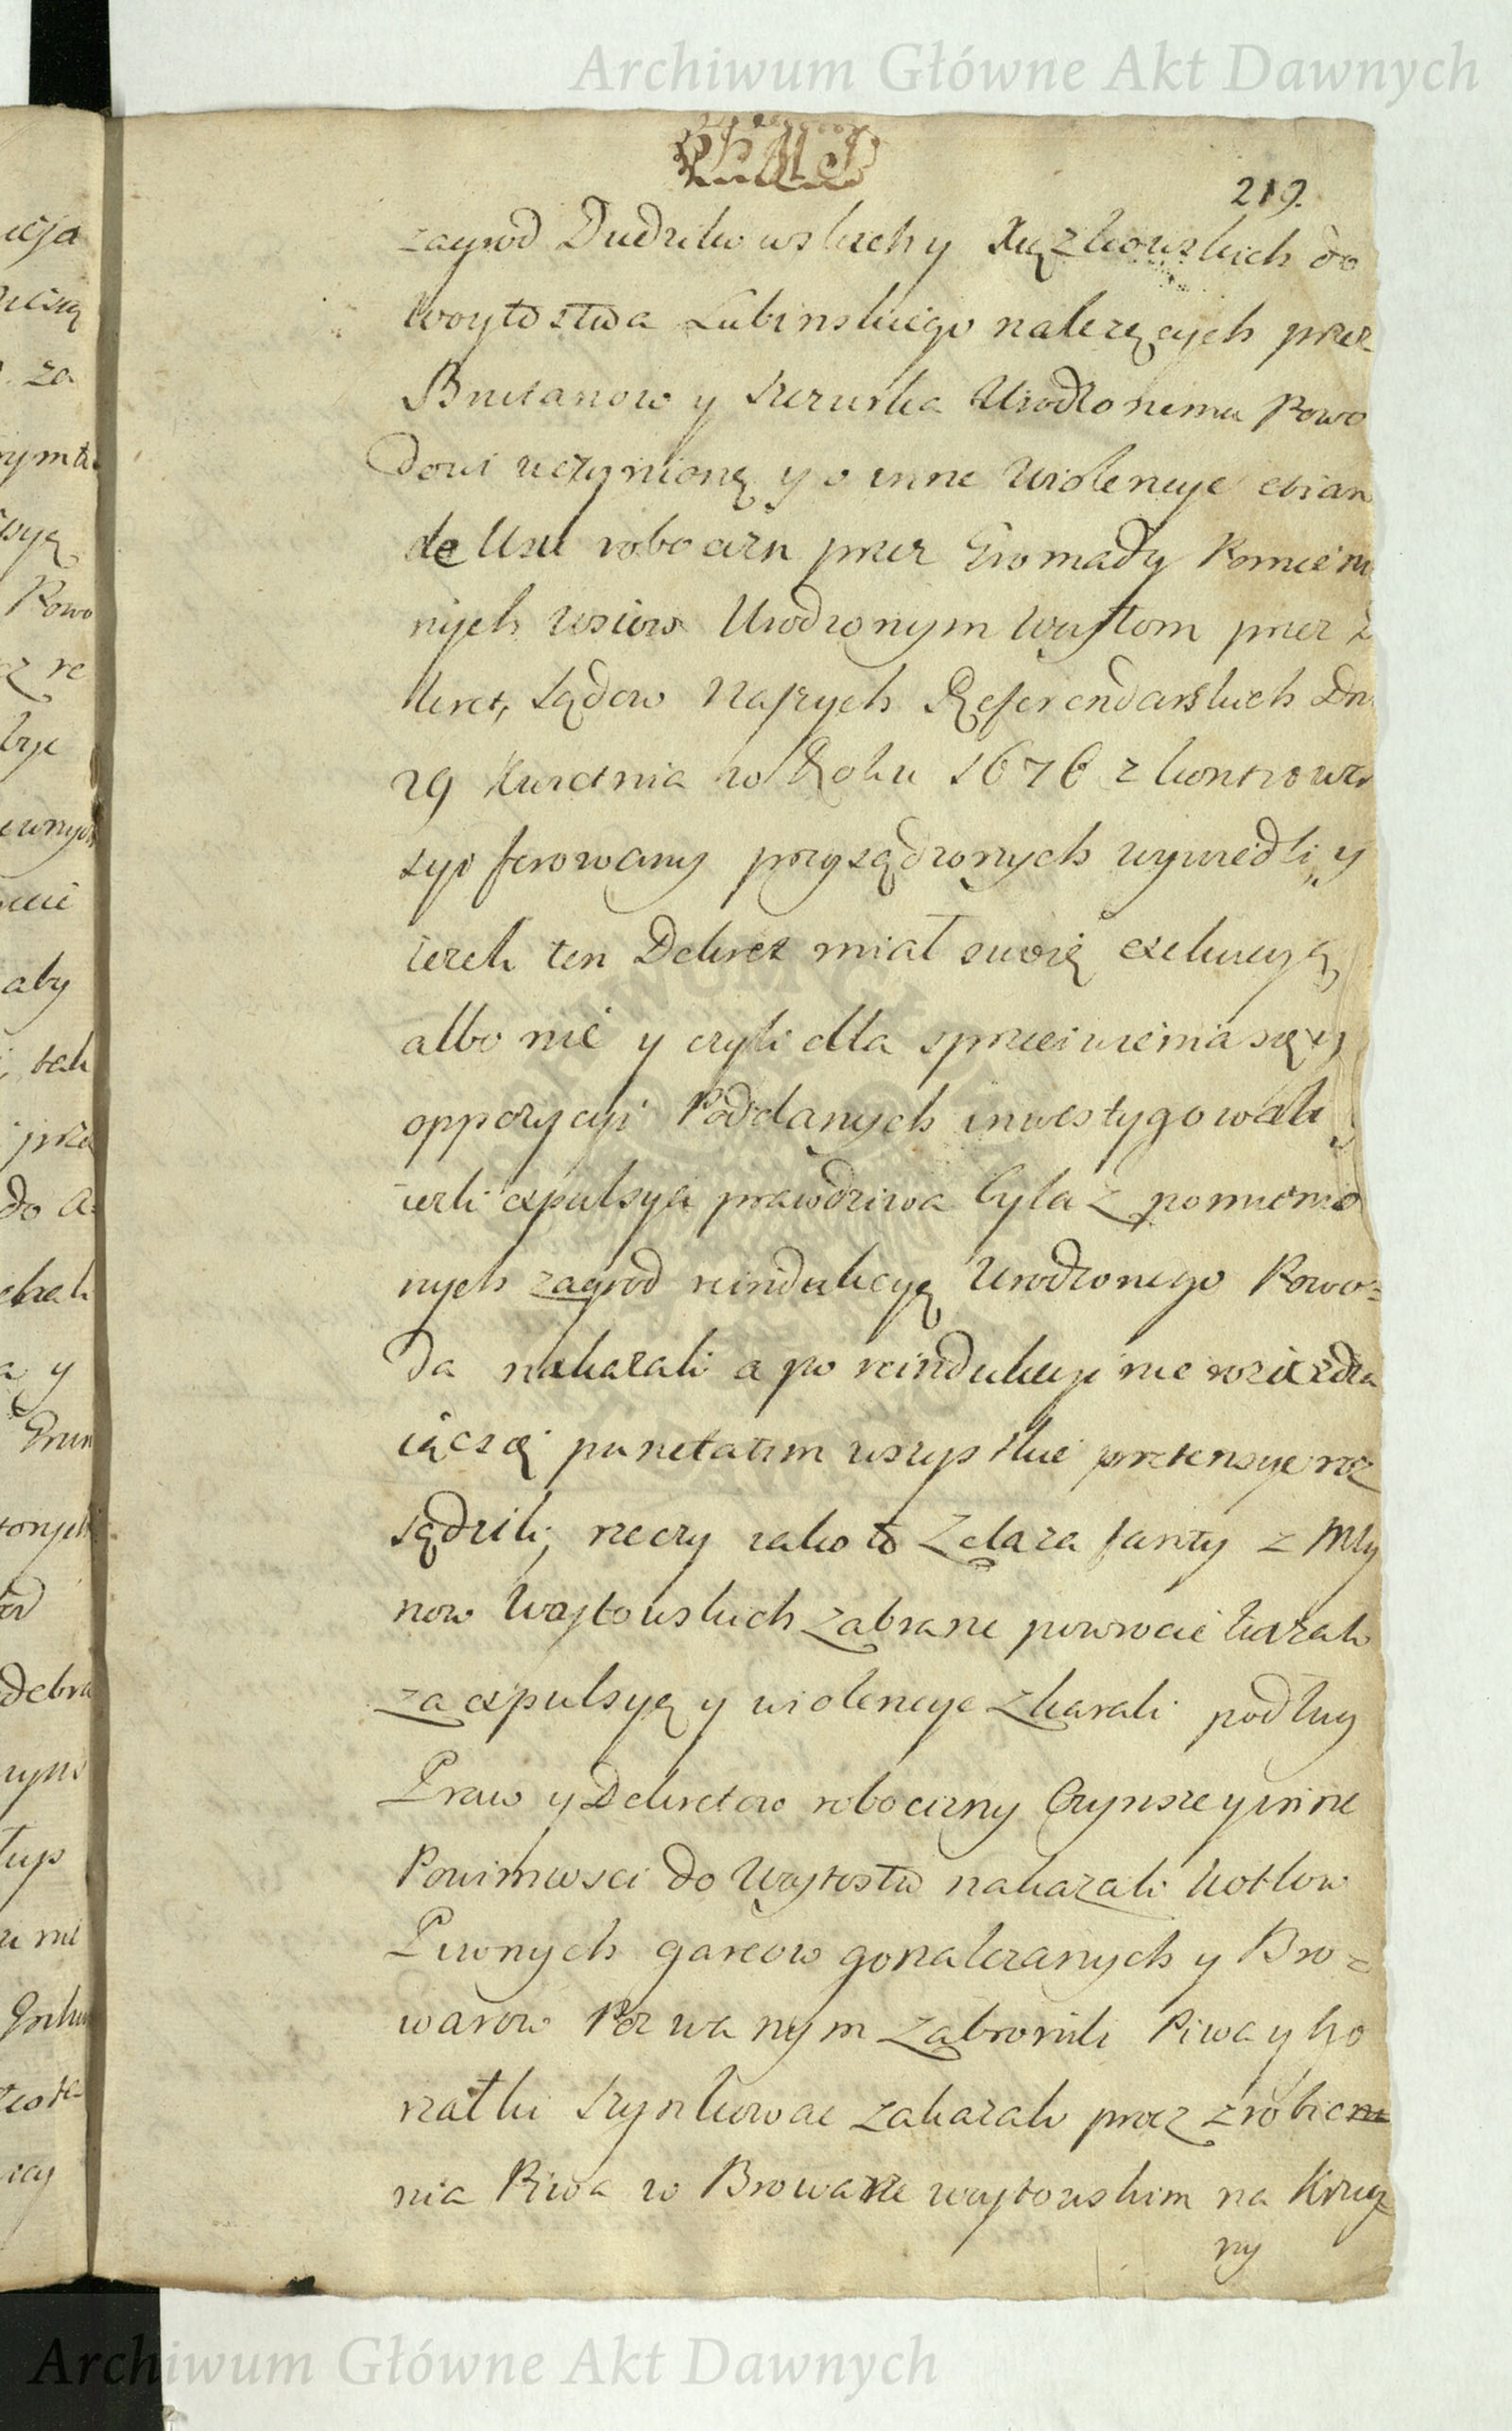 Archiwum Główne Akt Dawnych
219.
zagrod Dudzikowskich y Xięzkowskich do
Woytostwa Lubinskiego nalezących przez
y Urodzonemu Powo
dowi uczynioną y o inne wiolencye etiam
de Usu robocizn przez Gromady Pomienio
nych wsiow Urodzonym Woytom przez De
kret Sądow Naszych Referendarskich Dn
29 Kwietnia w Roku 1676 z kontrower
syi ferowany przysądzonych wywiedli, y
iezeli ten Dekret miał swoię exekucyą
albo nie y czyli dla sprzeciwienia się y
oppozycyi Poddanych inwestygowali y
iezli expulsya prawdziwa była z pomienio
nych zagrod reindukcyę Urodzonego Powo=
da nakazali a po reindukcyi nie rozieżdza
iąc się punctatim wszystkie pretensye roz
sądzili, rzeczy iako to Zelaza fanty z Mły
now Woytowskich zabrane powrocić kazali
za expulsyą y wiolencye zkarali podług
Praw y Dekretow robocizny Czynsze y inne
Powinnosci do Woytostw nakazali kotłow
Piwnych garcow gorzalczanych y Bro=
warow Pozwanym zabronili Piwa y Go
rzałki szynkować zakazali procz zrobie
nia Piwa w Browarze woytowskim na Krug
ny
Archiwum Główne Akt Dawnych